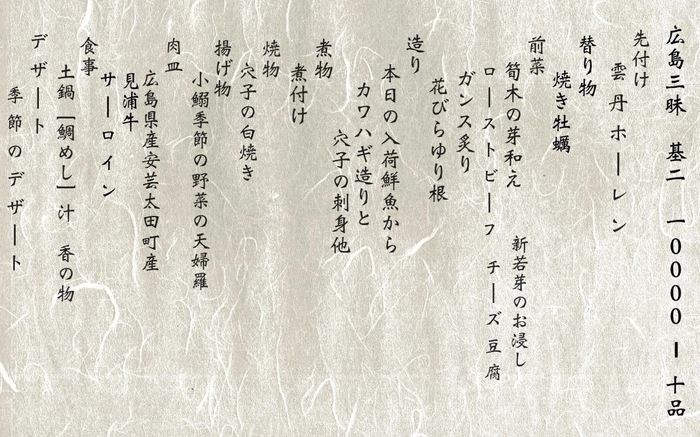 広島三昧　基二　一〇〇〇〇ー十品
先付け
雲丹ホーレン
替り物
焼き牡蠣
前菜
筍木の芽和え　新若芽のお浸し
ローストビーフ　チーズ豆腐
ガンス炙り
花びらゆり根
造り
本日の入荷鮮魚から
カワハギ造りと
穴子の刺身他
煮物
煮付け
焼物
穴子の白焼き
揚げ物
小鰯季節の野菜の天婦羅
肉皿
広島県産安芸太田町産
見浦牛
サーロイン
食事
土鍋「鯛めし」汁　香の物
デザート
季節のデザート